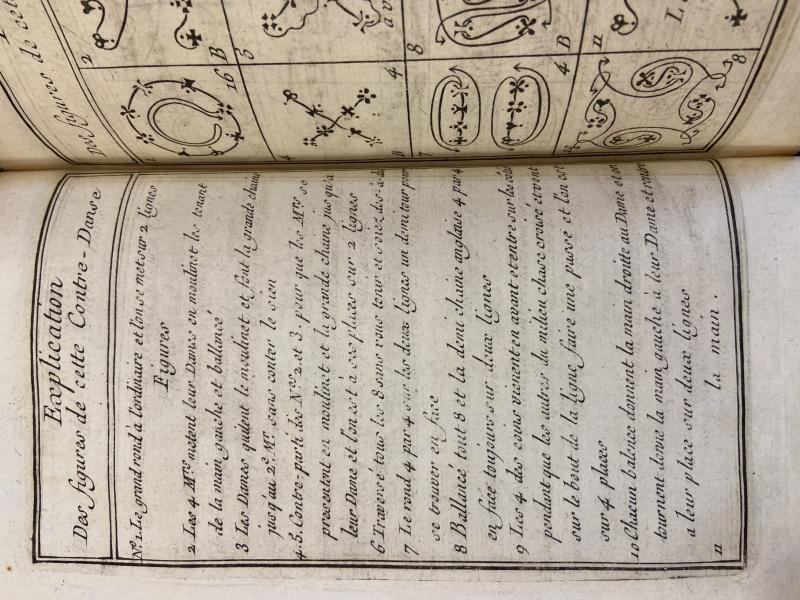 Explication
Des figures de cette Contre-Danse
No. 1. Le grand rond à lordinaire et lon se met sur 2 lignes
Figures
2 Les 4 Mrs metent leur Dames en moulinet les tenant
de la main gauche et ballancé
3 Les Dames quident le moulinet et font la grande chaine
jusqu'au 2e. Mr. sans conter le sien
4.5. Contre-parti des Nos. 2. et 3. pour que les Mrs se
presentent en moulinet et la grande chaine jusqu'a
leur Dame et lon est à ses places sur 2 lignes
6 Traversé tous les 8 sans vous tenir et
7 Le rond 4 par 4 sur les deux lignes un demi tour pour
se trouver en face
8 Ballancé tout 8 et la demi chaine anglaise 4 par 4
en face toujours sur deux lignes
9 Les 4 des coins vienent en avant et entre sur les
pendant que les autres du milieu chasé croisé et vont
sur le bout de la ligne faire une passe et lon est
sur 4 places
10 Chacun balence donnent la main droitte au Dame et
tournent donne la main gauche à leur Dame et
a leur place sur deux lignes
11 la main.
Des figures de cet
2
B
5
4
16
1
4
8
B
4
7
11
L.
8